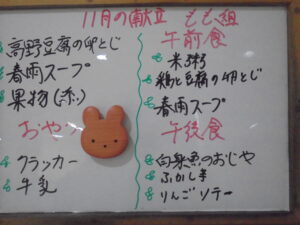 11月の献立 もも組
高野豆腐の卵とじ
春雨スープ
果物(柿)
おやつ
クラッカー
牛乳
午前食
米粥
鶏と豆腐の卵とじ
春雨スープ
午後食
白身魚のおじや
ふかし芋
りんごソテー